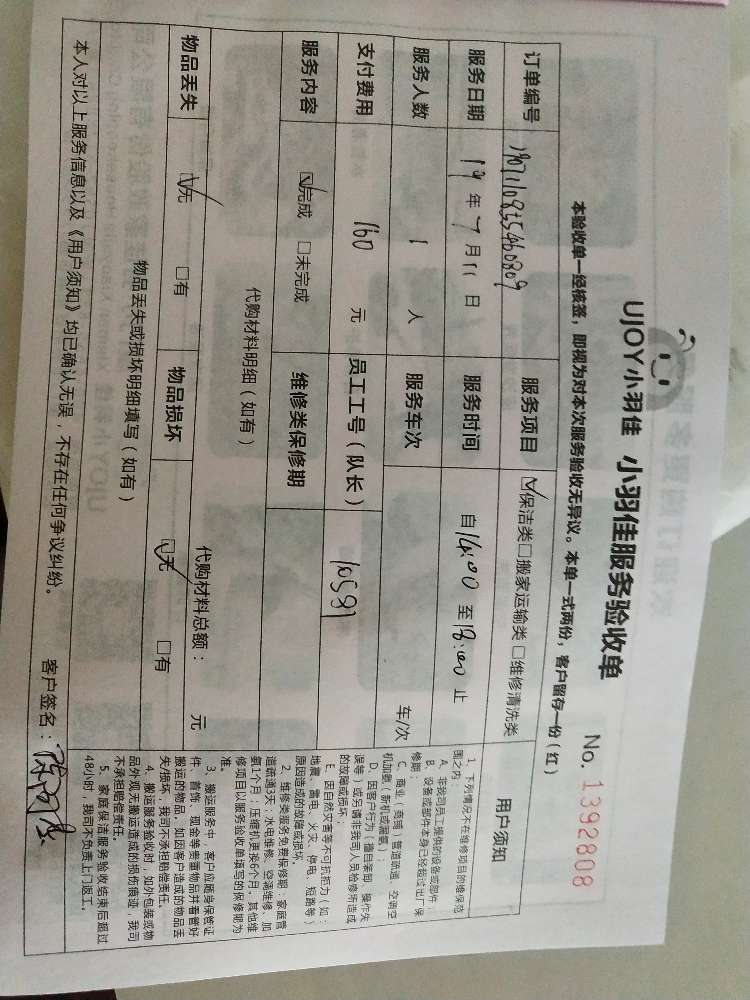 UJOY小羽佳 小羽佳服务验收单
No. 1392808
本验收单一经核签，即视为对本次服务验收无异议。本单一式两份，客户留存一份（红）
订单编号
服务项目 ☑保洁类□搬家运输类□维修清洗类
服务日期 19年7月11日 服务时间 自14:00至18:00止
服务人数 1 人 服务车次 车/次
支付费用 160 元 员工工号（队长） 10591
服务内容 ☑完成 □未完成 维修类保修期
代购材料明细（如有）
代购材料总额： 元
物品丢失 ☑无 □有 物品损坏 ☑无 □有
物品丢失或损坏明细填写（如有）
本人对以上服务信息以及《用户须知》均已确认无误，不存在任何争议纠纷。 客户签名：
用户须知
1、下列情况不在维修项目的维保范
围之内：
A、非我司员工提供的设备或部件；
B、设备或部件本身已经超过出厂保
修期；
C、商业（商铺）管道疏通、空调空
机加氨（新机或漏氨）；
D、因客户行为（擅自装卸、操作失
误等）或另请非我司人员检修所造成
的故障或损坏；
E、因自然灾害等不可抗拒力（如：
地震、雷电、火灾、停电、短路等）
原因造成的故障或损坏。
2、维修类服务免费保修期：家庭管
道疏通3天；水电维修、空调维修、加
氨1个月；压缩机更换6个月；其他维
修项目以服务验收单填写的保修期为
准。
3、搬运服务中，客户应随身保管证
件、首饰、现金等贵重物品并看管好
搬运的物品，如因客户造成的物品丢
失/损坏，我司不承担赔偿责任。
4、搬运服务验收时，如外包装或物
品外观无搬运造成的损伤痕迹，我司
不承担赔偿责任。
5、家庭保洁服务验收结束后超过
48小时，我司不负责上门返工。